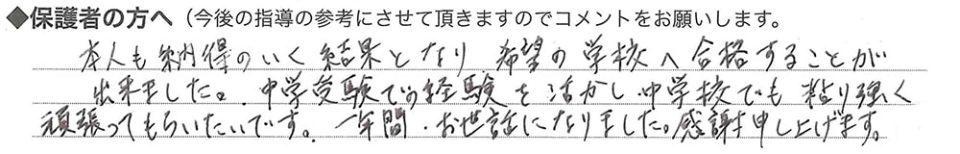 ◆保護者の方へ（今後の指導の参考にさせて頂きますのでコメントをお願いします。
本人も納得のいく結果となり 希望の学校へ合格することが
出来ました。中学受験での経験を活かし中学校でも 粘り強く
頑張ってもらいたいです。一年間、お世話になりました。感謝申し上げます。